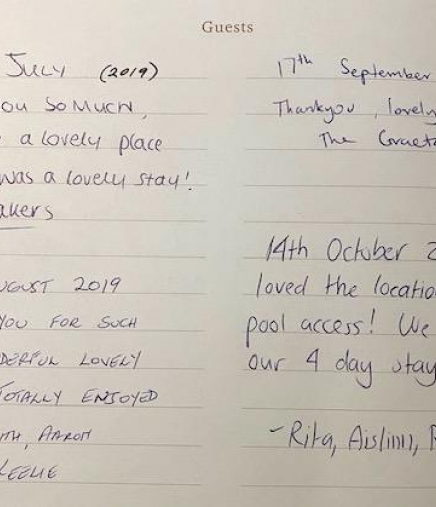 Guests
July (2019)
ou so much,
a lovely place
was a lovely stay!
akers
ugust 2019
you for such
derful lovely
totally enjoyed
ith, Aaron
Keelie
17th September
Thankyou, lovely
The
14th October 2
loved the locatio
pool access! We
our 4 day stay
- Rita, Aislinn, R